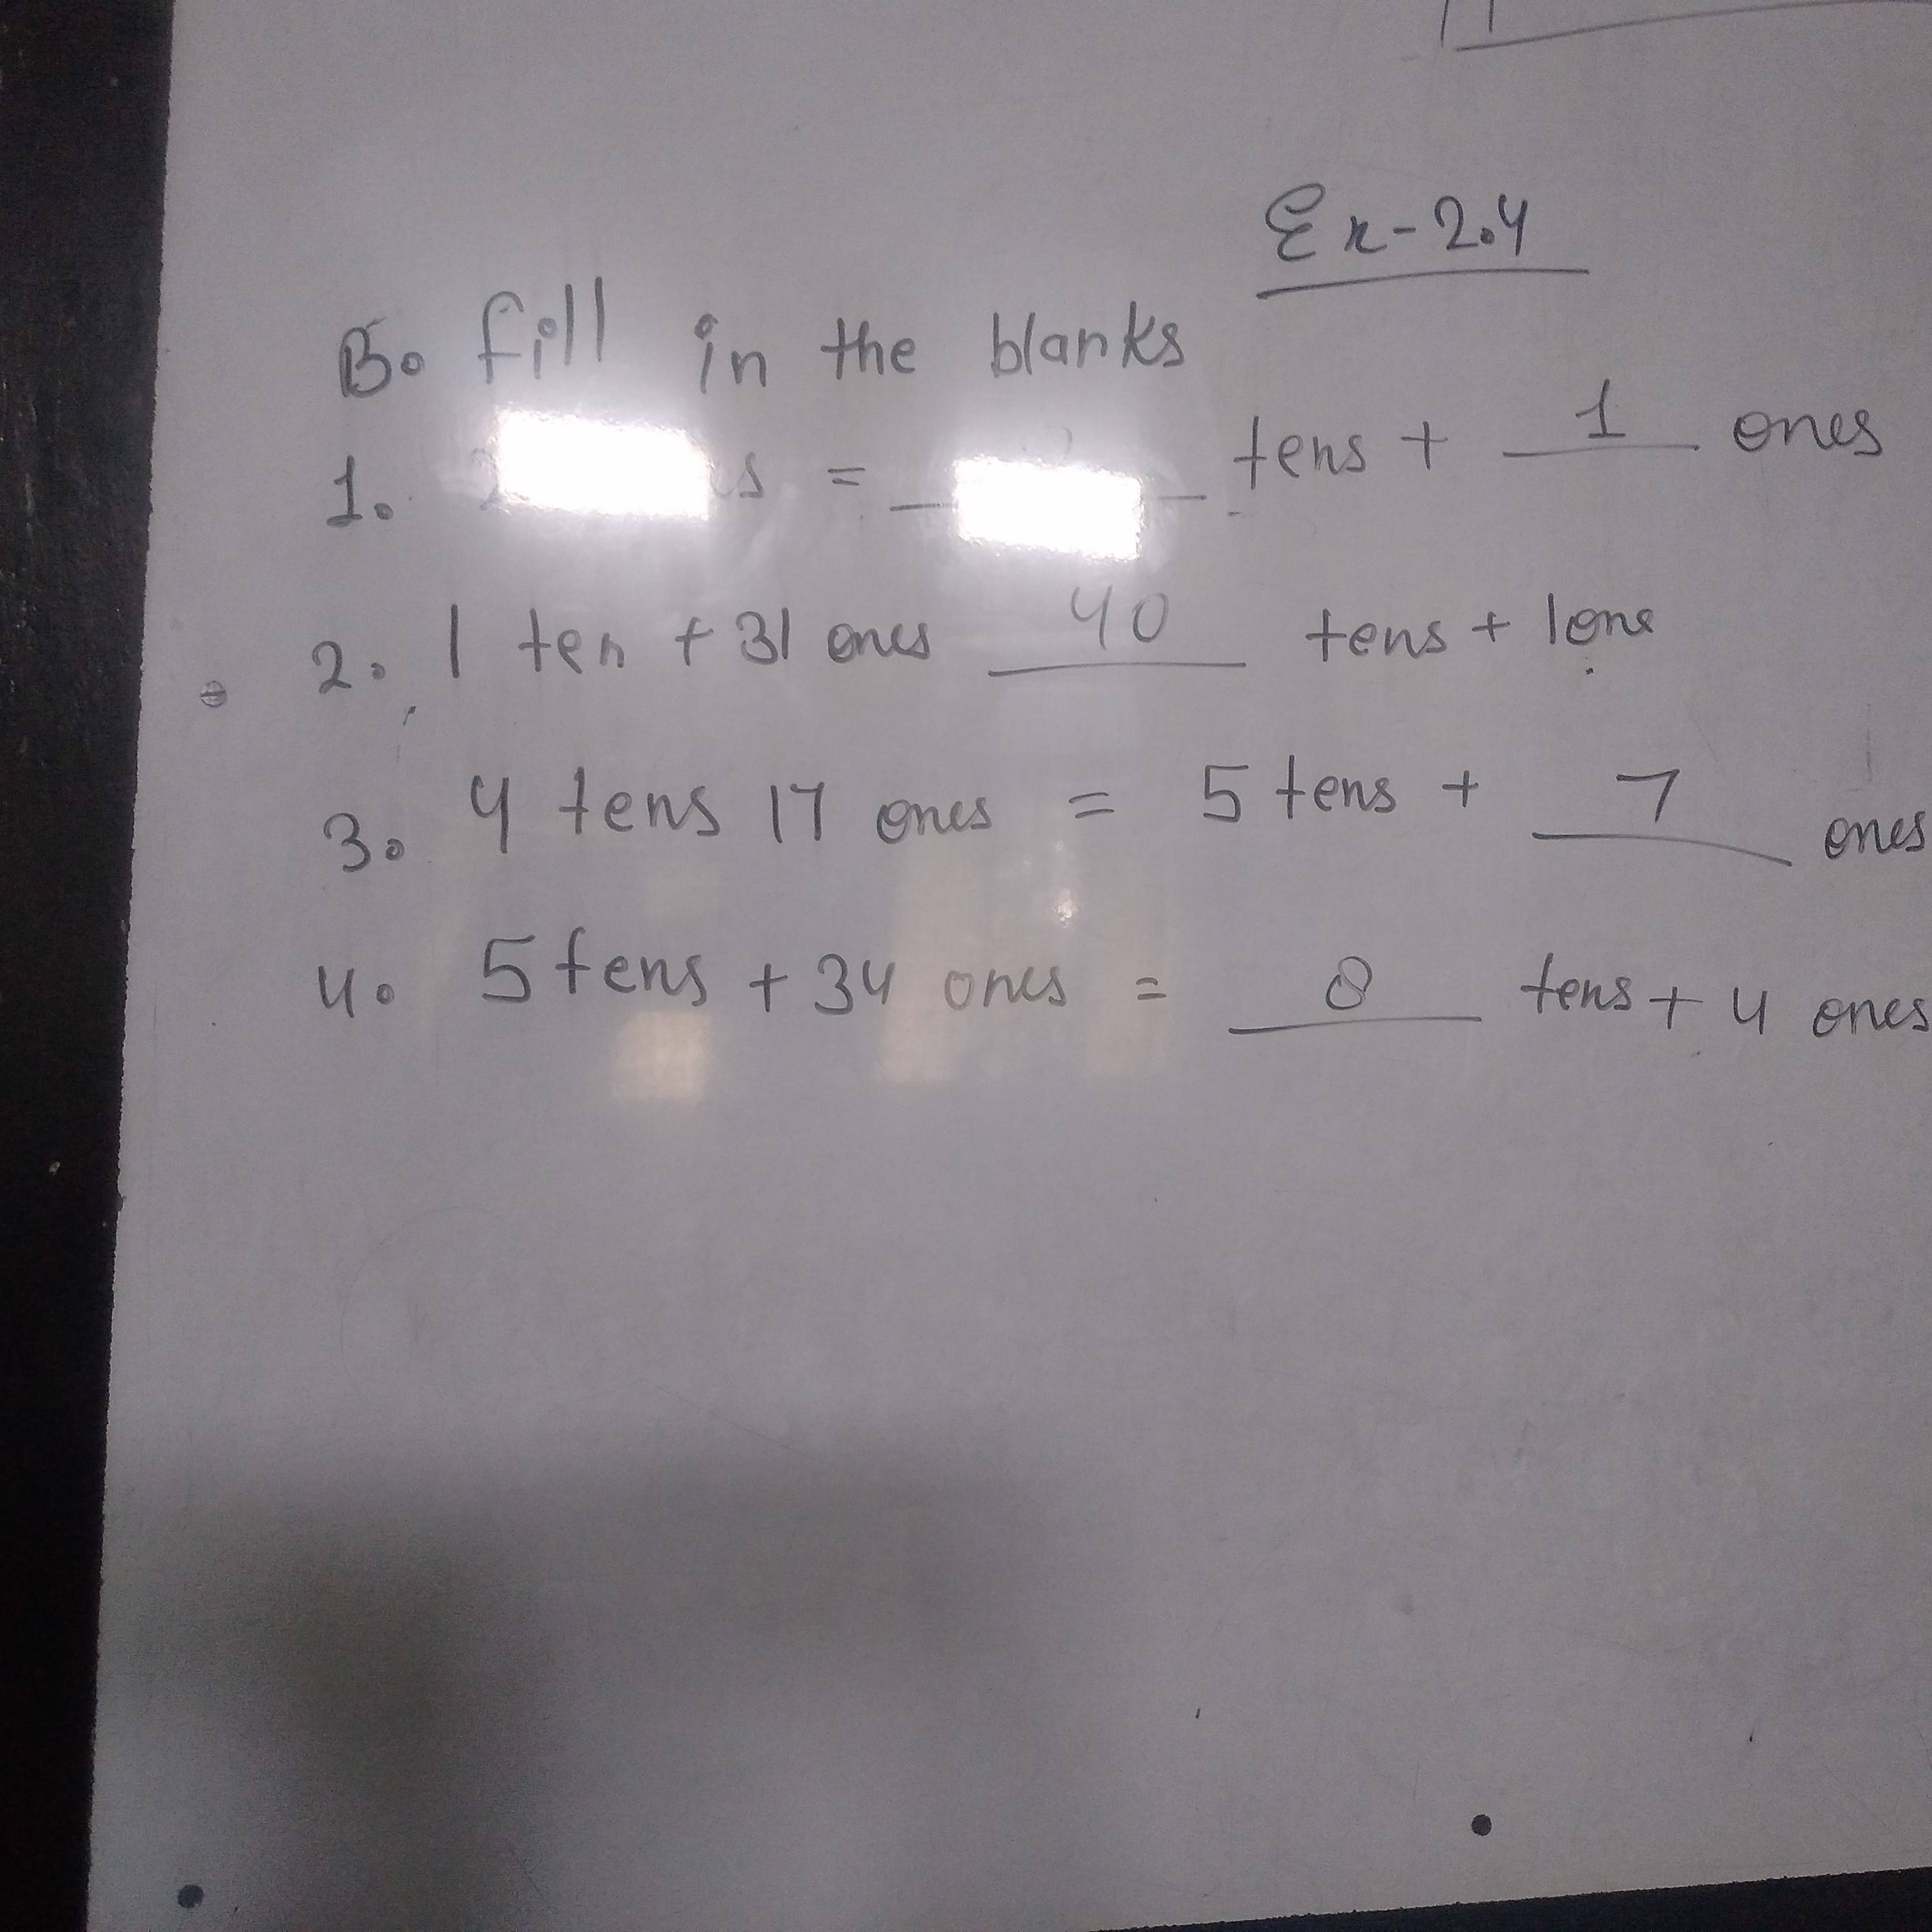 Ex-2.4
B. fill in the blanks
1. = tens + 1 ones
2. 1 ten + 31 ones 40 tens + 1one
3. 4 tens 17 ones = 5 tens + 7 ones
4. 5 tens + 34 ones = 8 tens + 4 ones